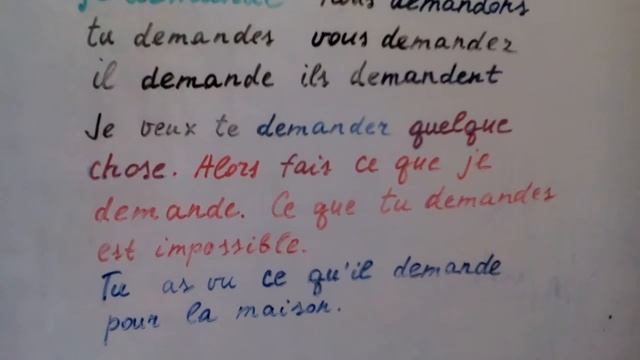 je demande nous demandons
tu demandes vous demandez
il demande ils demandent
Je veux te demander quelque
chose. Alors fais ce que je
demande. Ce que tu demandes
est impossible.
Tu as vu ce qu'il demande
pour la maison.